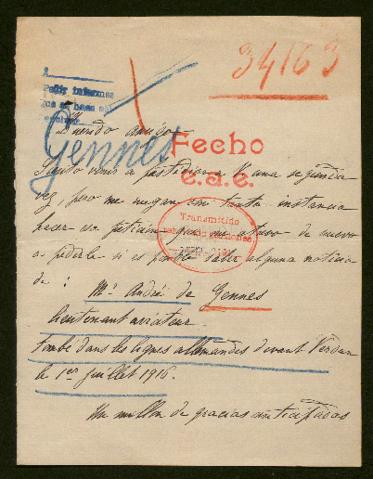 34163
Pedir informes
Gennes
Querido amigo:
Fecho
e.a.e.
Siento venir a fastidiar a V. una segunda
vez pero me ruegan con tanta instancia
hacer esa petición que me atrevo de nuevo
a pedirle si es posible saber alguna noticia
de :
Transmitido
Mr André de Gennes
lieutenant aviateur
tombé dans les lignes allemandes devant Verdun
le 1er juillet 1916.
Un millon de gracias anticipadas